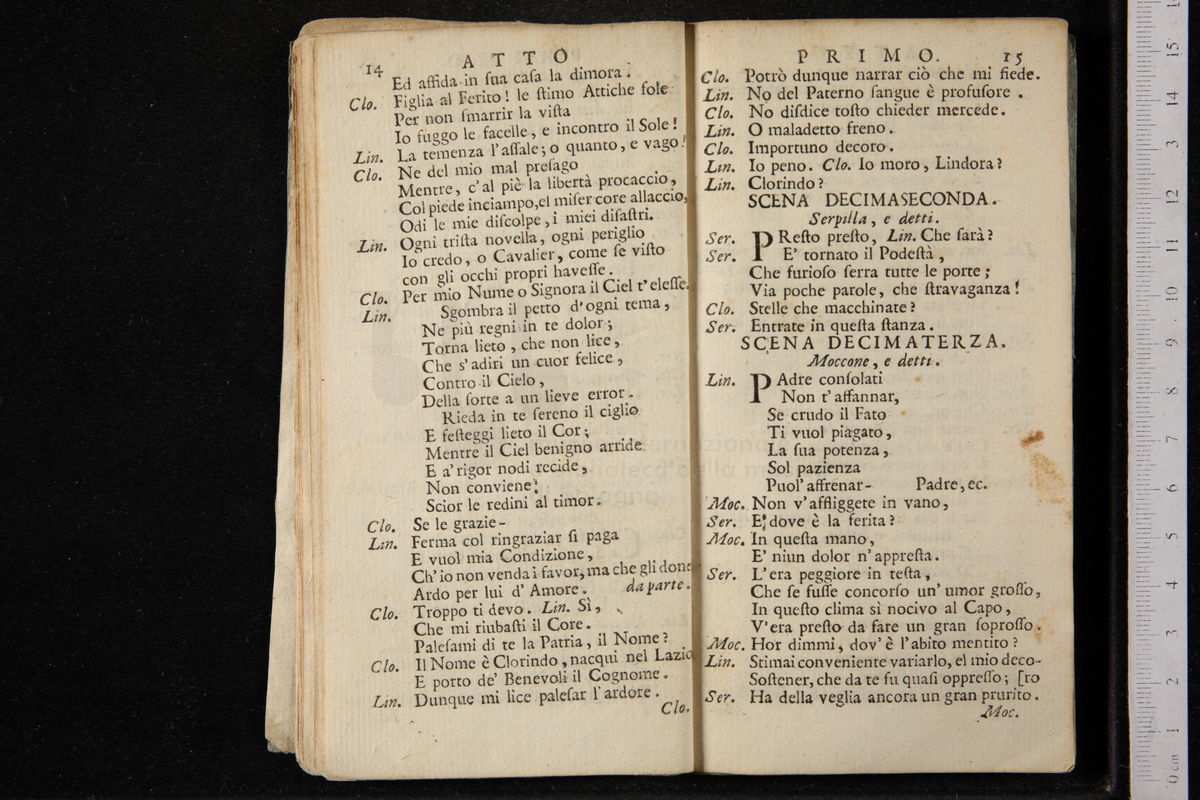 14 ATTO
Ed affida in ſua caſa la dimora.
Clo. Figlia al Ferito! le ſtimo Attiche ſole
Per non ſmarrir la viſta
Io fuggo le facelle, e incontro il Sole!
Lin. La temenza l'aſſale; o quanto, e vago!
Clo. Ne del mio mal preſago
Mentre, c'al piè la libertà procaccio,
Col piede inciampo, el miſer core allaccio,
Odi le mie diſcolpe, i miei diſaſtri.
Lin. Ogni triſta novella, ogni periglio
Io credo, o Cavalier, come ſe viſto
con gli occhi propri haveſſe.
Clo. Per mio Nume o Signora il Ciel t'eleſſe.
Lin. Sgombra il petto d'ogni tema,
Ne più regni in te dolor;
Torna lieto, che non lice,
Che s'adiri un cuor felice,
Contro il Cielo,
Della ſorte a un lieve error.
Rieda in te ſereno il ciglio
E feſteggi lieto il Cor;
Mentre il Ciel benigno arride
E a'rigor nodi recide,
Non conviene
Scior le redini al timor.
Clo. Se le grazie-
Lin. Ferma col ringraziar ſi paga
E vuol mia Condizione,
Ch'io non venda i favor, ma che gli done
Ardo per lui d'Amore. da parte.
Clo. Troppo ti devo. Lin. Sì,
Che mi riubaſti il Core.
Paleſami di te la Patria, il Nome?
Clo. Il Nome è Clorindo, nacqui nel Lazio
E porto de' Benevoli il Cognome.
Lin. Dunque mi lice paleſar l'ardore.
Clo.
PRIMO. 15
Clo. Potrò dunque narrar ciò che mi fiede.
Lin. No del Paterno ſangue è profuſore.
Clo. No diſdice toſto chieder mercede.
Lin. O maladetto freno.
Clo. Importuno decoro.
Lin. Io peno. Clo. Io moro, Lindora?
Lin. Clorindo?
SCENA DECIMASECONDA.
Serpilla, e detti.
Ser. PReſto preſto, Lin. Che ſarà?
Ser. E' tornato il Podeſtà,
Che furioſo ſerra tutte le porte;
Via poche parole, che ſtravaganza!
Clo. Stelle che macchinate?
Ser. Entrate in queſta ſtanza.
SCENA DECIMATERZA.
Moccone, e detti.
Lin. PAdre conſolati
Non t'affannar,
Se crudo il Fato
Ti vuol piagato,
La ſua potenza,
Sol pazienza
Puol'affrenar- Padre, ec.
Moc. Non v'affliggete in vano,
Ser. E dove è la ferita?
Moc. In queſta mano,
E' niun dolor n'appreſta.
Ser. L'era peggiore in teſta,
Che ſe fuſſe concorſo un'umor groſſo,
In queſto clima sì nocivo al Capo,
V'era preſto da fare un gran ſoproſſo.
Moc. Hor dimmi, dov'è l'abito mentito?
Lin. Stimai conveniente variarlo, el mio deco-
Soſtener, che da te fu quaſi oppreſſo; [ro
Ser. Ha della veglia ancora un gran prurito.
Moc.